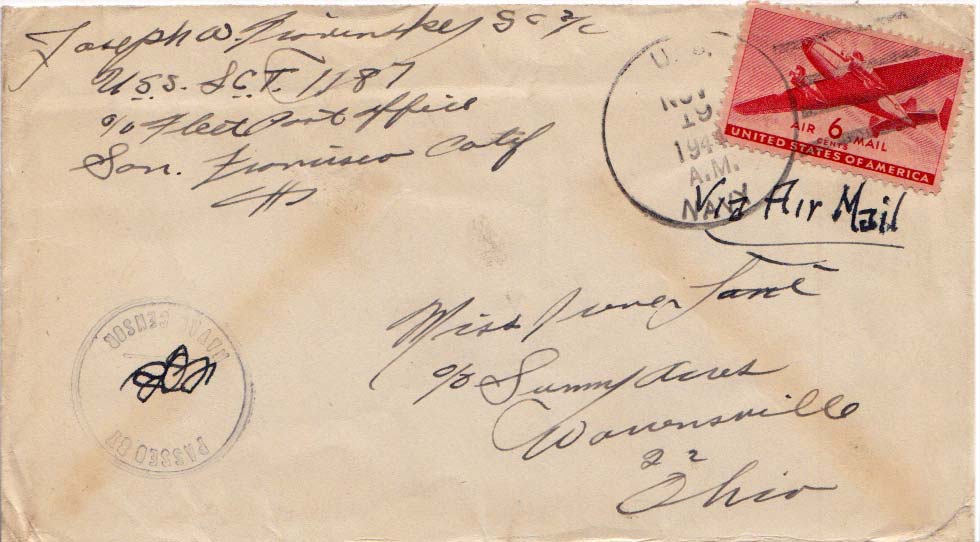 Joseph W. SC 2/c
U.S.S. LCT. 1187
c/o Fleet Post Office
San. Francisco Calif
U.S.
NOV
19
194
A.M.
NAVY
AIR 6 MAIL
CENTS
UNITED STATES OF AMERICA
Via Air Mail
Miss
c/o Sunny Acres
Warrensville
22
Ohio
PASSED BY
NAVAL CENSOR